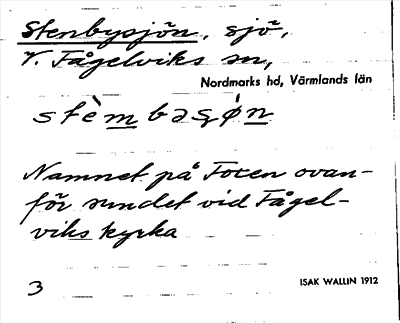 Stenbysjön, sjö,
V. Fågelviks sn,
Nordmarks hd, Värmlands län
stèm basǿn
Namnet på Foxen ovan-
för sundet vid Fågel-
viks kyrka
3
ISAK WALLIN 1912